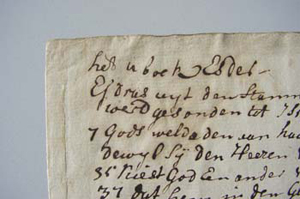 het ii boek Esdre
Esdras uyt den Stamm
werd gesonden tot Is
7 Gods weldaden aan ha
dewyl sij den Heeren
35 kiest God En ander
37 dat hem in den G